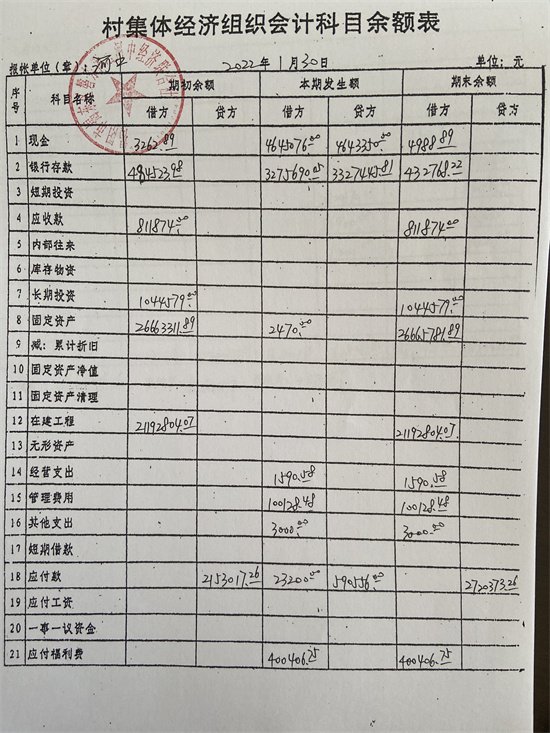 村集体经济组织会计科目余额表
报帐单位(章): 河中 2022年1月30日 单位: 元
序号 科目名称 期初余额 本期发生额 期末余额
借方 贷方 借方 贷方 借方 贷方
1 现金 3262.89 4645076.00 4643350.00 4988.89
2 银行存款 484523.98 3275690.05 3327445.81 432768.22
3 短期投资
4 应收款 811874.00 811874.00
5 内部往来
6 库存物资
7 长期投资 1044579.00 1044579.00
8 固定资产 26663311.89 2470.00 26665781.89
9 减:累计折旧
10 固定资产净值
11 固定资产清理
12 在建工程 21192804.07 21192804.07
13 无形资产
14 经营支出 1590.58 1590.58
15 管理费用 100128.48 100128.48
16 其他支出 3000.00 3000.00
17 短期借款
18 应付款 2153017.26 23200.00 590556.00 2720373.26
19 应付工资
20 一事一议资金
21 应付福利费 400406.75 400406.75